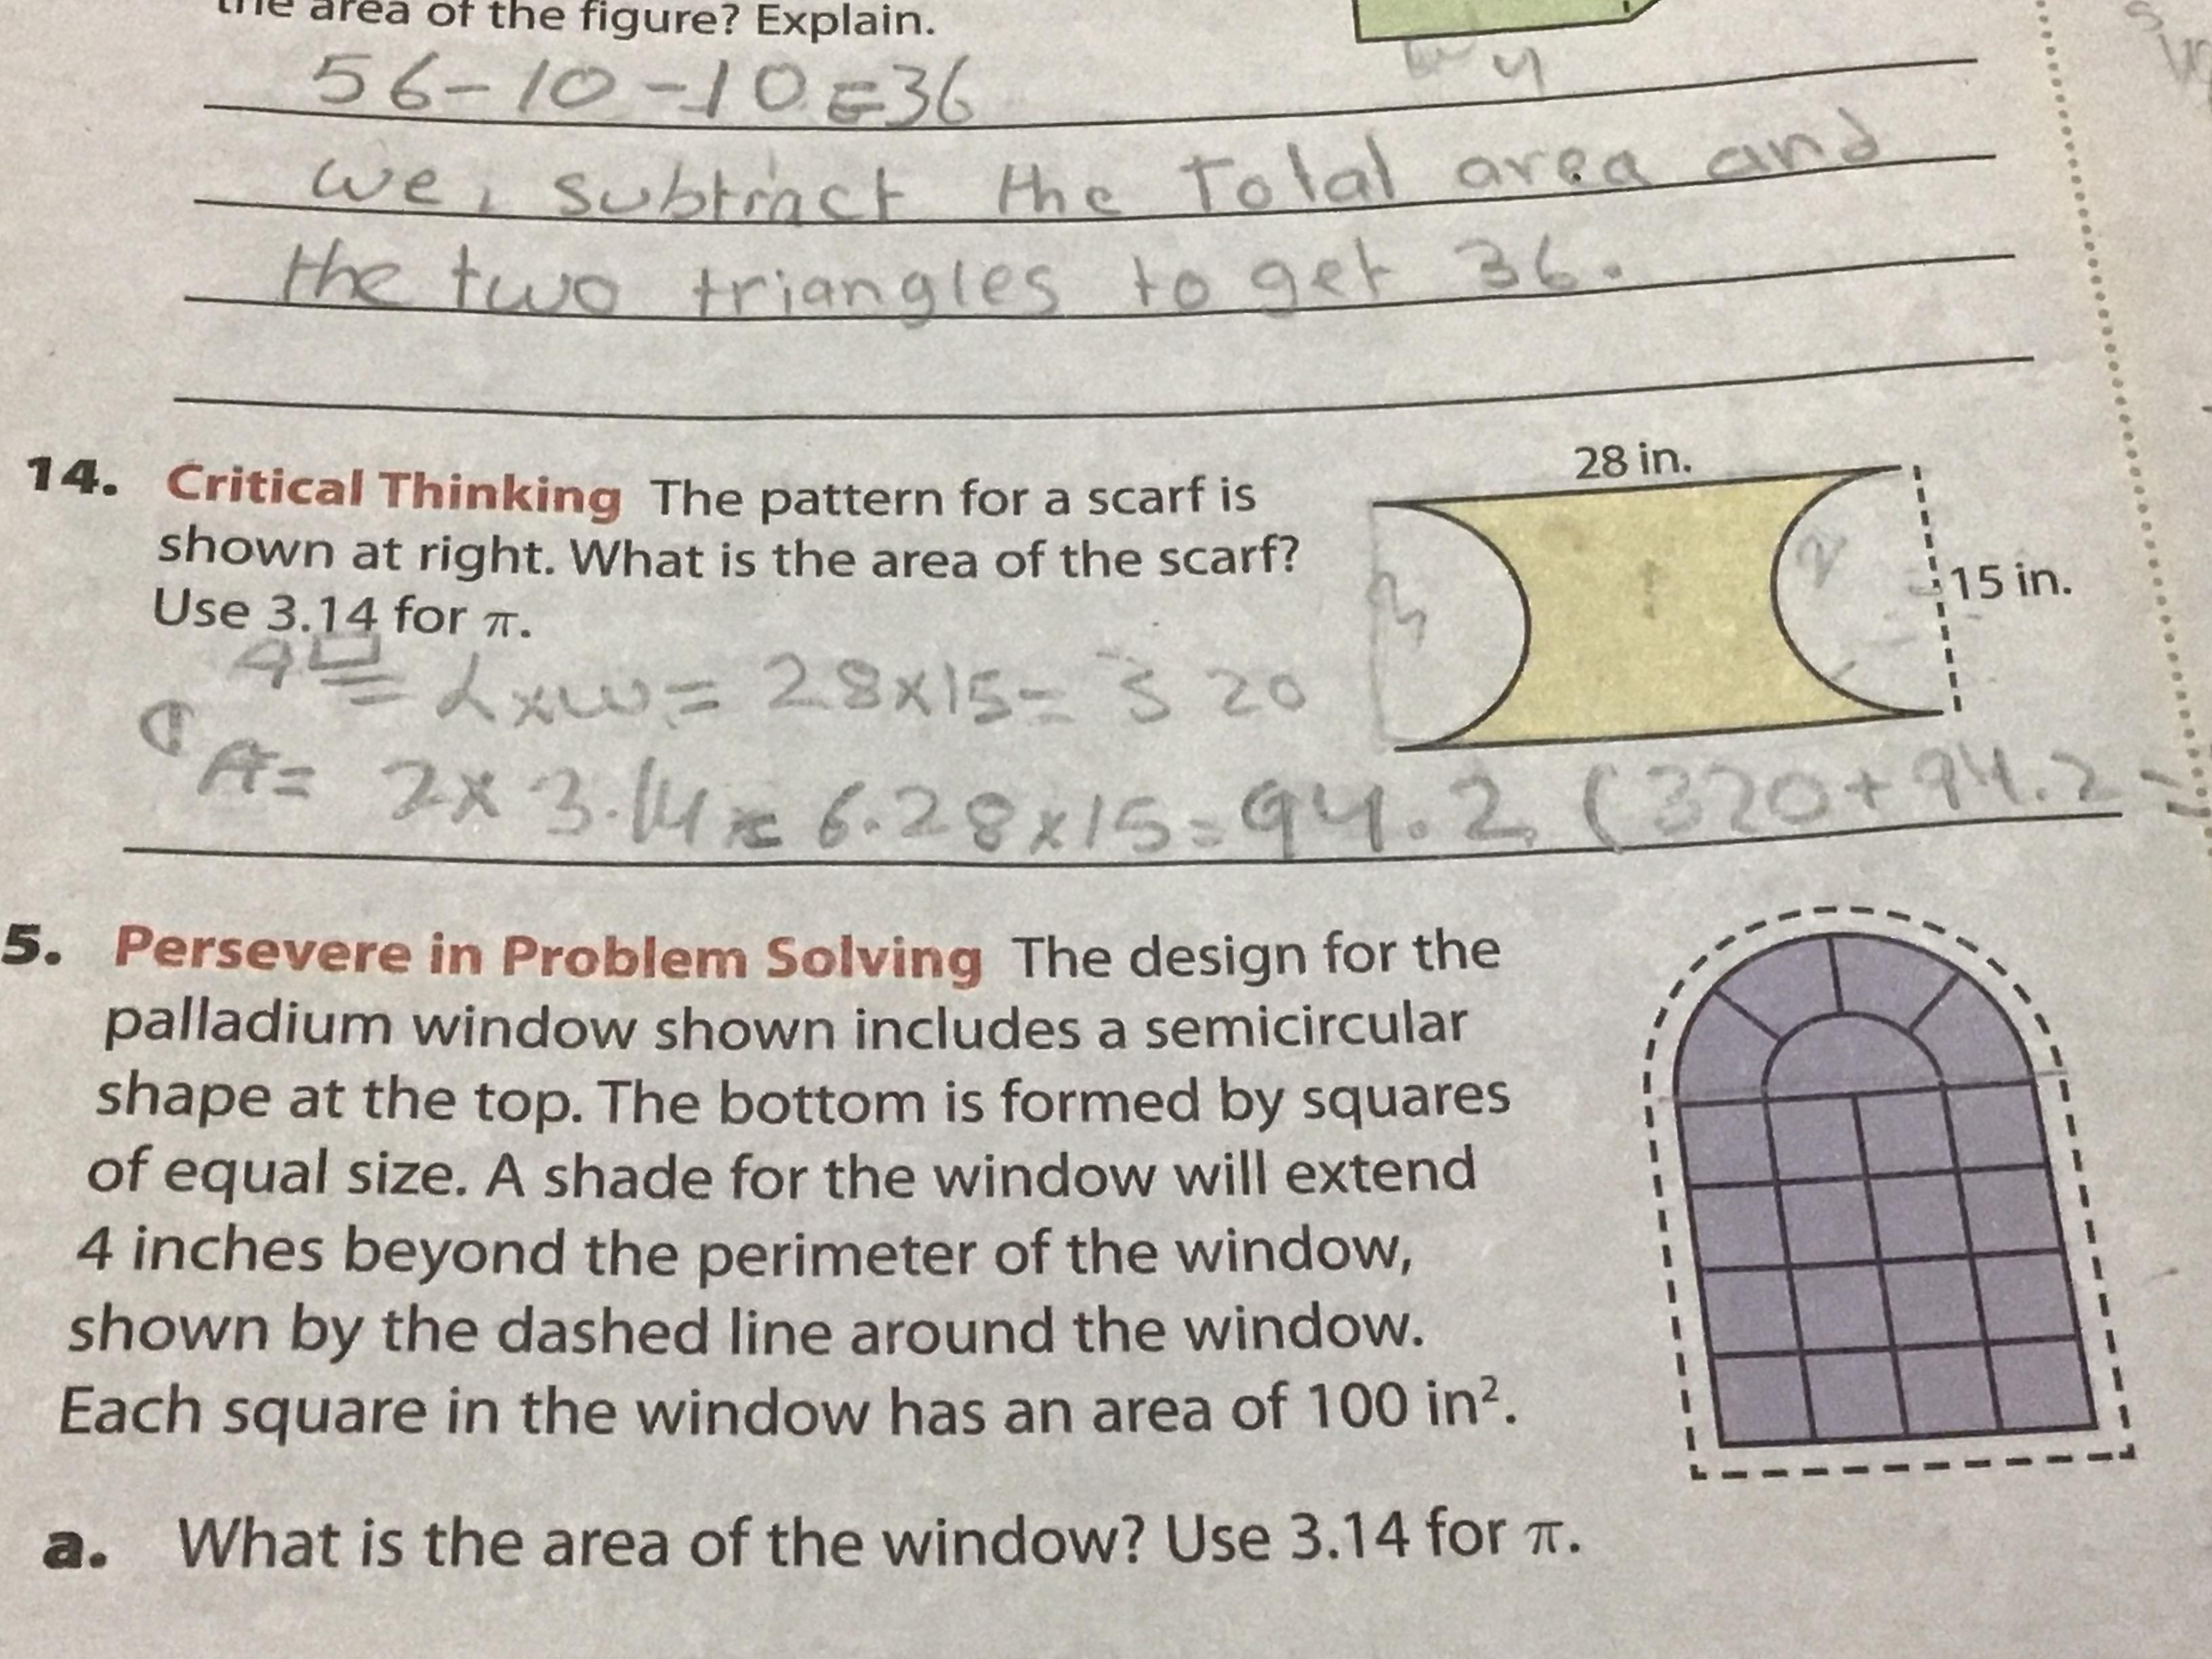 the area of the figure? Explain.
56-10-10=36
4
we, subtract the Total area and
the two triangles to get 36.
14. Critical Thinking The pattern for a scarf is
shown at right. What is the area of the scarf?
Use 3.14 for π.
28 in.
15 in.
1
2
3
A▭= L×w= 28×15= 320
A= 2× 3.14 = 6.28×15=94.2 (320+94.2 =
5. Persevere in Problem Solving The design for the
palladium window shown includes a semicircular
shape at the top. The bottom is formed by squares
of equal size. A shade for the window will extend
4 inches beyond the perimeter of the window,
shown by the dashed line around the window.
Each square in the window has an area of 100 in².
a. What is the area of the window? Use 3.14 for π.